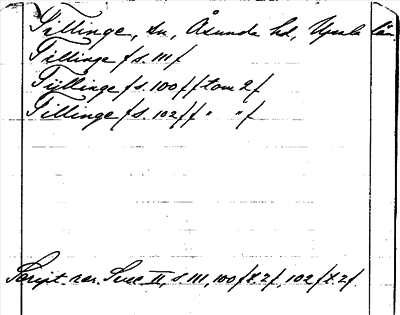 Tillinge, sn, Åsunda hd, Upsala län.
Tillinge /s. 111/
Tyllinge /s. 100/ /tom 2/
Tillinge /s. 102/ /" "/
Script. rer. Svec II, s. 111, 100/t.2/, 102/t.2/.